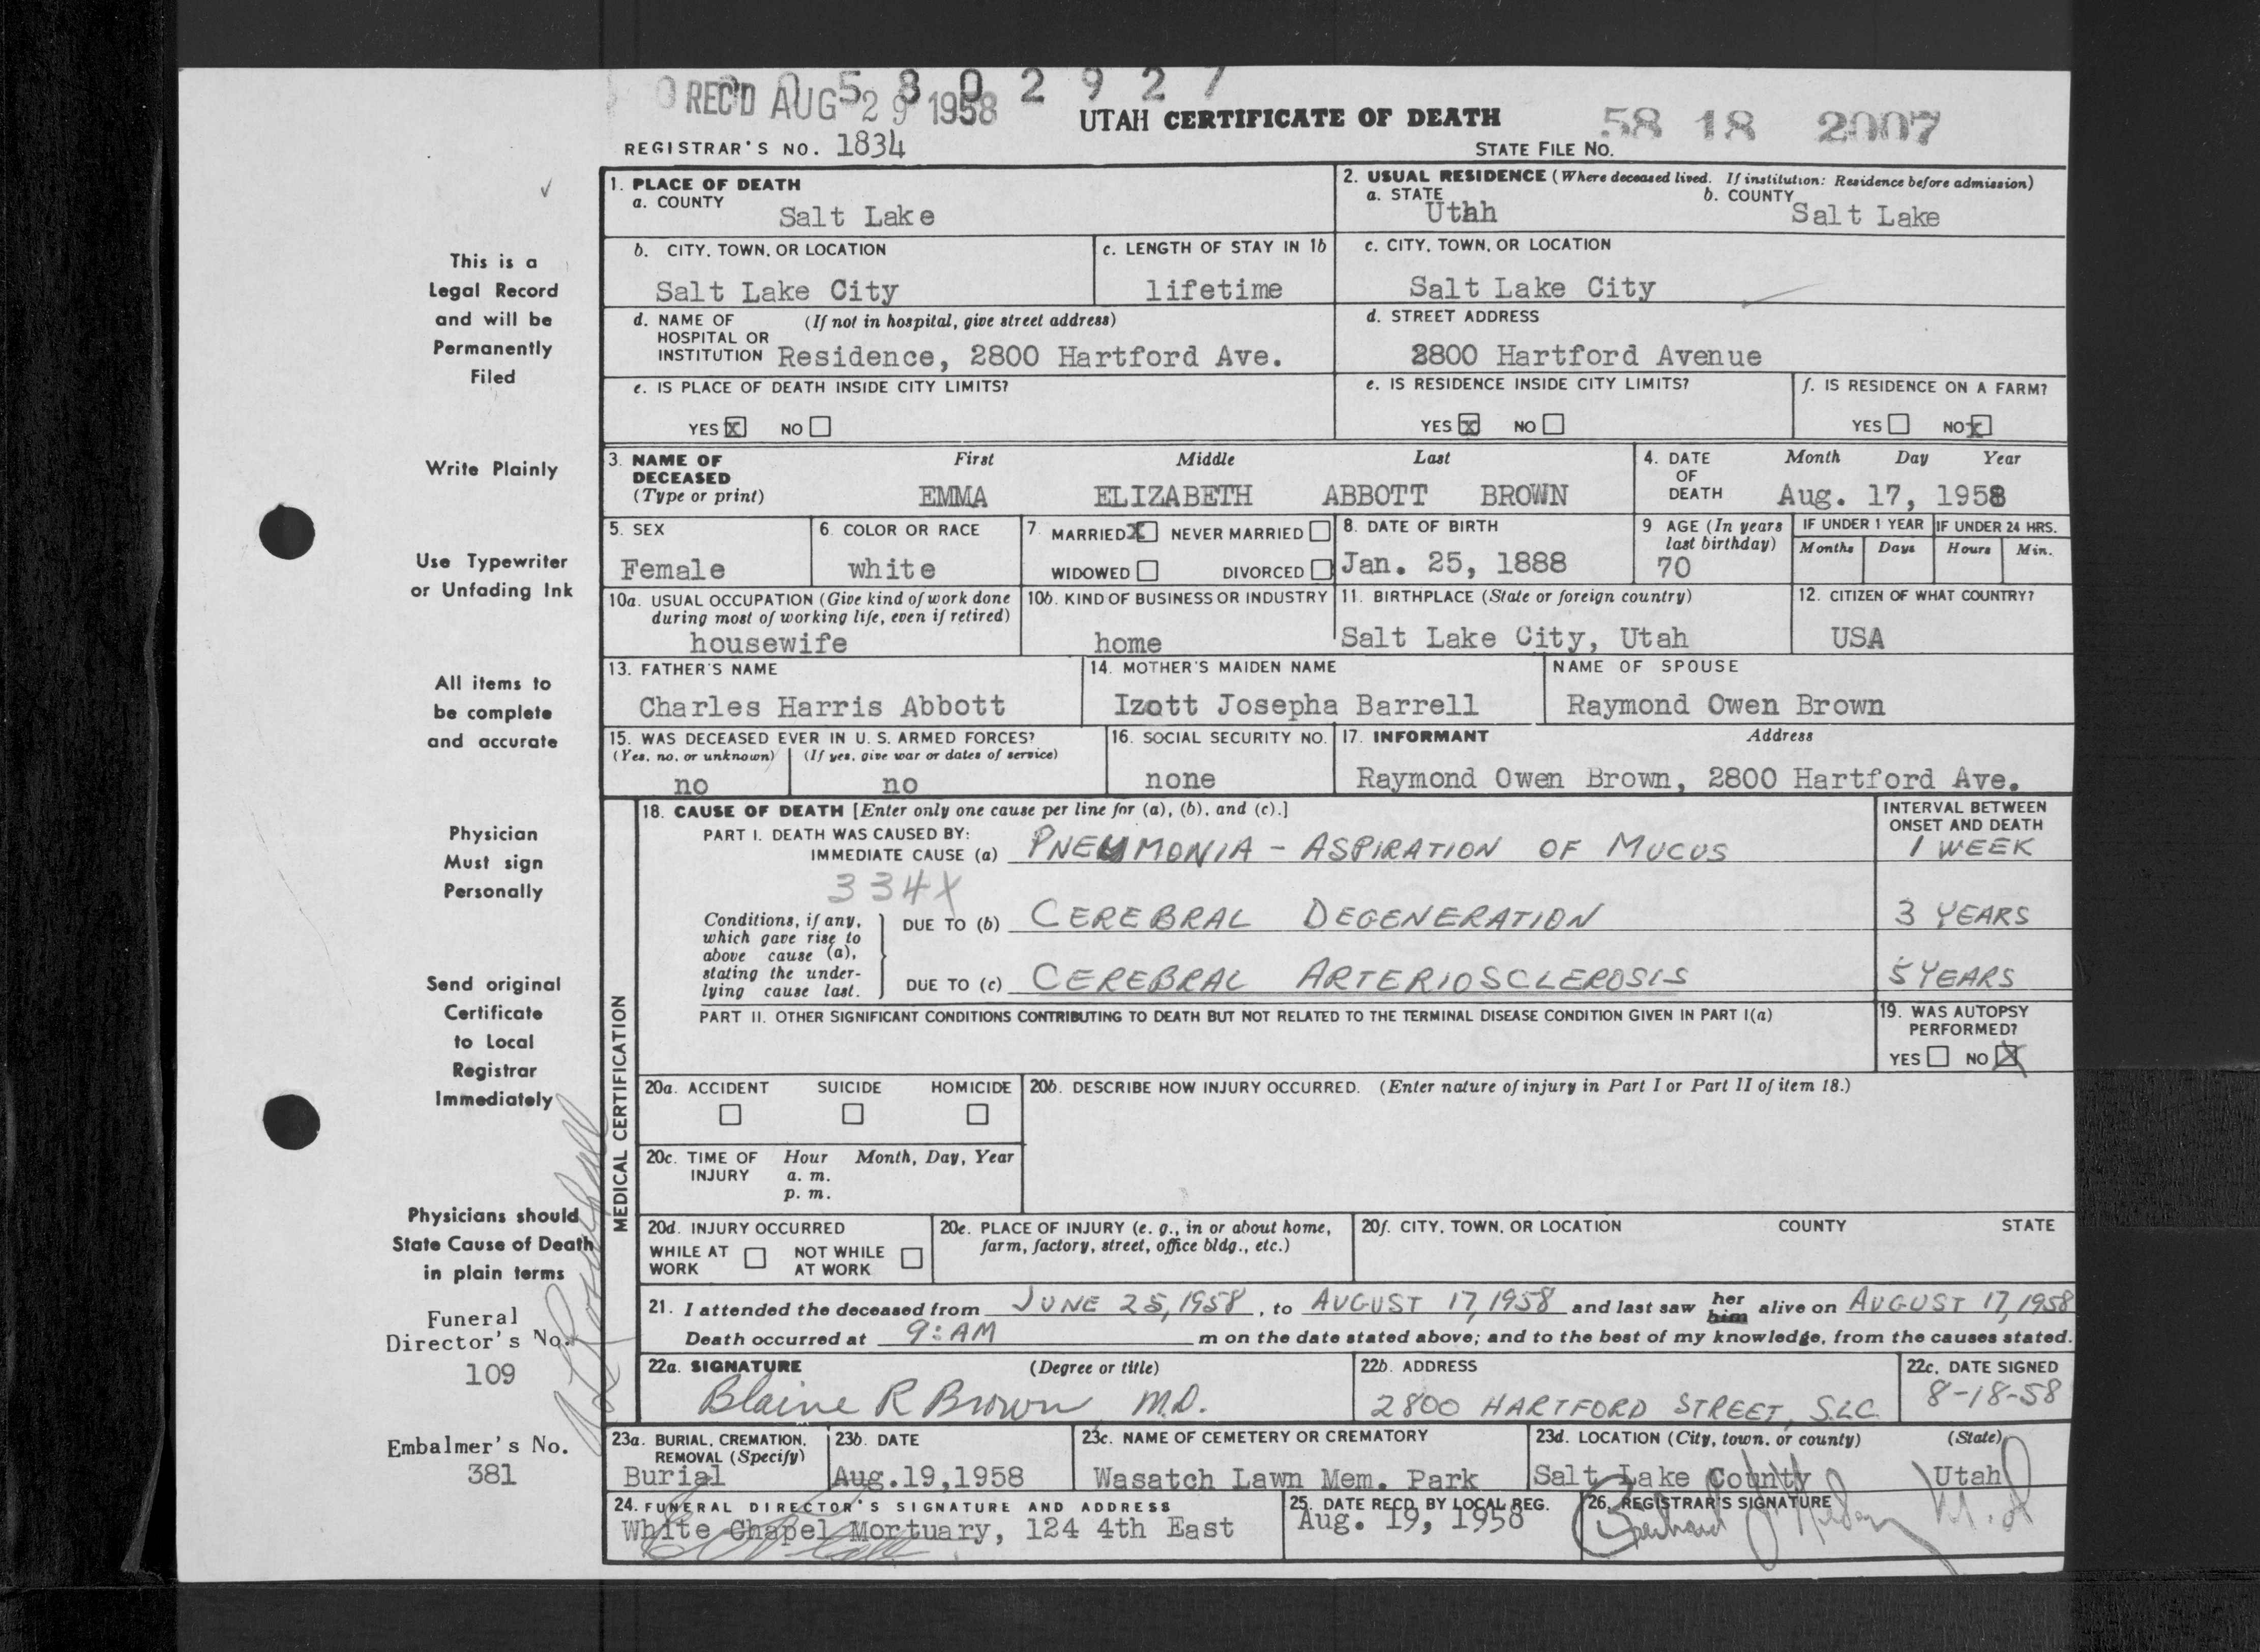 0 5 8 0 2 9 2 7
REC'D AUG 29 1958
UTAH CERTIFICATE OF DEATH
58 18 2007
REGISTRAR'S NO. 1834
STATE FILE NO.
1. PLACE OF DEATH
a. COUNTY
Salt Lake
2. USUAL RESIDENCE (Where deceased lived. If institution: Residence before admission)
a. STATE b. COUNTY
Utah Salt Lake
b. CITY, TOWN, OR LOCATION
Salt Lake City
c. LENGTH OF STAY IN 1b
lifetime
c. CITY, TOWN, OR LOCATION
Salt Lake City
d. NAME OF (If not in hospital, give street address)
HOSPITAL OR
INSTITUTION Residence, 2800 Hartford Ave.
d. STREET ADDRESS
2800 Hartford Avenue
e. IS PLACE OF DEATH INSIDE CITY LIMITS?
YES X NO
e. IS RESIDENCE INSIDE CITY LIMITS?
YES X NO
f. IS RESIDENCE ON A FARM?
YES NO X
3. NAME OF DECEASED (Type or print)
First Middle Last
EMMA ELIZABETH ABBOTT BROWN
4. DATE OF DEATH
Month Day Year
Aug. 17, 1958
5. SEX
Female
6. COLOR OR RACE
white
7. MARRIED X NEVER MARRIED
WIDOWED DIVORCED
8. DATE OF BIRTH
Jan. 25, 1888
9 AGE (In years
last birthday)
70
IF UNDER 1 YEAR IF UNDER 24 HRS.
Months Days Hours Min.
10a. USUAL OCCUPATION (Give kind of work done
during most of working life, even if retired)
housewife
10b. KIND OF BUSINESS OR INDUSTRY
home
11. BIRTHPLACE (State or foreign country)
Salt Lake City, Utah
12. CITIZEN OF WHAT COUNTRY?
USA
13. FATHER'S NAME
Charles Harris Abbott
14. MOTHER'S MAIDEN NAME
Izott Josepha Barrell
NAME OF SPOUSE
Raymond Owen Brown
15. WAS DECEASED EVER IN U. S. ARMED FORCES?
(Yes, no, or unknown) (If yes, give war or dates of service)
no no
16. SOCIAL SECURITY NO.
none
17. INFORMANT Address
Raymond Owen Brown, 2800 Hartford Ave.
MEDICAL CERTIFICATION
18. CAUSE OF DEATH [Enter only one cause per line for (a), (b), and (c).]
INTERVAL BETWEEN
ONSET AND DEATH
PART I. DEATH WAS CAUSED BY:
IMMEDIATE CAUSE (a) PNEUMONIA - ASPIRATION OF MUCUS 1 WEEK
334X
Conditions, if any,
which gave rise to
above cause (a),
stating the under-
lying cause last.
DUE TO (b) CEREBRAL DEGENERATION 3 YEARS
DUE TO (c) CEREBRAL ARTERIOSCLEROSIS 5 YEARS
PART II. OTHER SIGNIFICANT CONDITIONS CONTRIBUTING TO DEATH BUT NOT RELATED TO THE TERMINAL DISEASE CONDITION GIVEN IN PART I(a)
19. WAS AUTOPSY
PERFORMED?
YES NO X
20a. ACCIDENT SUICIDE HOMICIDE
20b. DESCRIBE HOW INJURY OCCURRED. (Enter nature of injury in Part I or Part II of item 18.)
20c. TIME OF Hour Month, Day, Year
INJURY a. m.
p. m.
20d. INJURY OCCURRED
WHILE AT WORK NOT WHILE AT WORK
20e. PLACE OF INJURY (e. g., in or about home,
farm, factory, street, office bldg., etc.)
20f. CITY, TOWN, OR LOCATION COUNTY STATE
21. I attended the deceased from JUNE 25, 1958, to AUGUST 17, 1958 and last saw her him alive on AUGUST 17, 1958
Death occurred at 9: AM m on the date stated above; and to the best of my knowledge, from the causes stated.
22a. SIGNATURE (Degree or title)
Blaine R Brown M.D.
22b. ADDRESS
2800 HARTFORD STREET, S.L.C.
22c. DATE SIGNED
8-18-58
23a. BURIAL, CREMATION,
REMOVAL (Specify)
Burial
23b. DATE
Aug.19,1958
23c. NAME OF CEMETERY OR CREMATORY
Wasatch Lawn Mem. Park
23d. LOCATION (City, town, or county) (State)
Salt Lake County Utah
24. FUNERAL DIRECTOR'S SIGNATURE AND ADDRESS
White Chapel Mortuary, 124 4th East
25. DATE RECD. BY LOCAL REG.
Aug. 19, 1958
26. REGISTRAR'S SIGNATURE
M.D
This is a
Legal Record
and will be
Permanently
Filed
Write Plainly
Use Typewriter
or Unfading Ink
All items to
be complete
and accurate
Physician
Must sign
Personally
Send original
Certificate
to Local
Registrar
Immediately
Physicians should
State Cause of Death
in plain terms
Funeral
Director's No.
109
Embalmer's No.
381